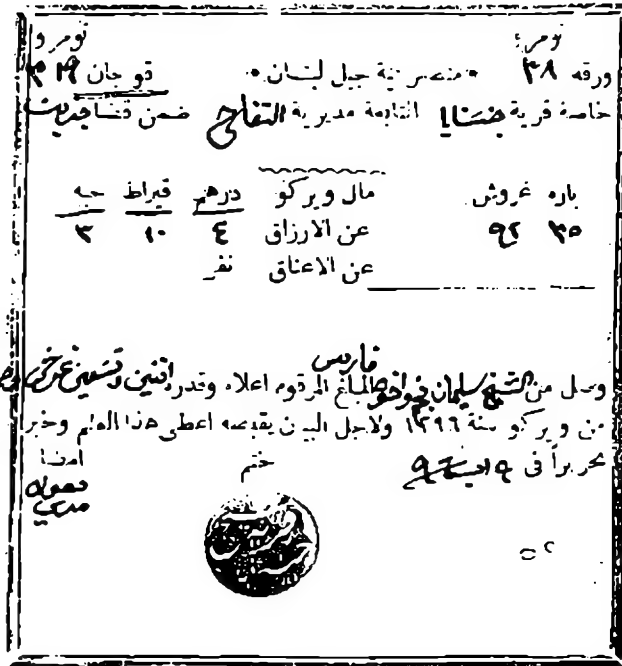 نومرو نومرو
ورقه ٣٨ * متصرفية جبل لبنان * قوجان ٣١٩
خاصة قرية جنسنايا التابعة مديرية التفاح ضمن قضا جزين
باره غروش مال ويركو درهم قيراط حبه
٣٥ ٩٢ عن الارزاق ٤ ١٠ ٣
عن الاعناق نفر
فارس
وصل من الشيخ سليمان المبلغ المرقوم اعلاه وقدره اثنين وتسعين غرش
من ويركو سنة ١٢٩٦ ولاجل البيان بقبضه اعطي هذا العلم وخبر
تحريراً في ٩ ختم امضا